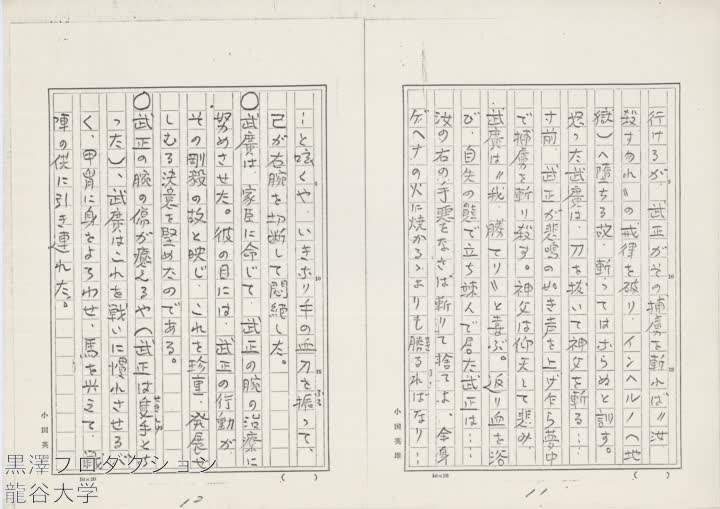 行けるが、武正がその捕虜を斬れば〝汝
殺すなかれ〟の戒律を破り、インヘルノへ地
獄)へ堕ちる故、斬ってはならぬと訓す。
怒った武廣は、刀を抜いて神父を斬る…
す前、武正が悲鳴の如き声を上げ乍ら夢中
で捕虜を斬り殺す。神父は仰天して悲み、
武廣は〝我、勝てり〟と喜ぶ。返り血を浴
び、自失の態で立ち竦んで居た武正は…
汝の右の手悪をなさば斬りて捨てよ、全身
ゲヘナの火に焼かるゝよりも勝るればなり…
小国英雄
11
…と呟くや、いきなり手の血刀を振って、
己が右腕を切断して悶絶した。
○武廣は、家臣に命じて、武正の腕の治療に
努めさせた。彼の目には、武正の行動が
その剛毅の故と映じ、これを珍重、発展せ
しむる決意を堅めたのである。
○武正の腕の傷が癒えるや(武正は隻手とな
った)、武廣はこれを戦いに慣れさせる
く、甲冑に身をよろわせ、馬を与えて、
陣の供に引き連れた。
小国英雄
12
黒澤プロダクション
龍谷大学